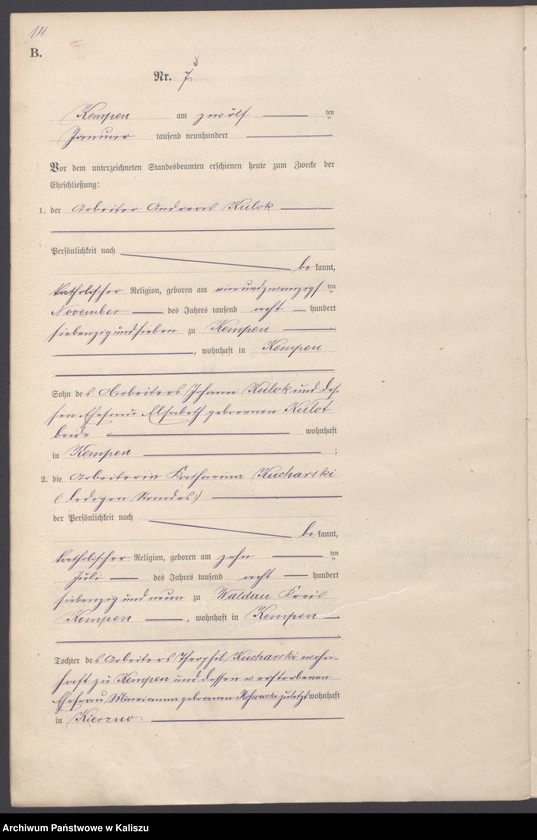 B.
Nr. 7
Kempen am zwölf ten
Januar tausend neunhundert
Vor dem unterzeichneten Standesbeamten erschienen heute zum Zwecke der
Eheschließung:
1. der Arbeiter Andreas Kulok
Persönlichkeit nach
be kannt,
katholischer Religion, geboren am vierundzwanzigsten
November des Jahres tausend acht hundert
siebenzig und sieben zu Kempen
, wohnhaft in Kempen
Sohn des Arbeiters Johann Kulok und des-
sen Ehefrau Elisabeth geborenen
beide wohnhaft
in Kempen ;
2. die Arbeiterin Katharina Kucharski
(ledigen Standes)
der Persönlichkeit nach
be kannt,
katholischer Religion, geboren am zehn ten
Juli des Jahres tausend acht hundert
siebenzig und neun zu Waldau Kreis
Kempen , wohnhaft in Kempen
Tochter des Arbeiters Theophil Kucharski wohn-
haft zu Kempen und dessen verstorbenen
Ehefrau Marianna geborenen zuletzt wohnhaft
in Kierzno
Archiwum Państwowe w Kaliszu